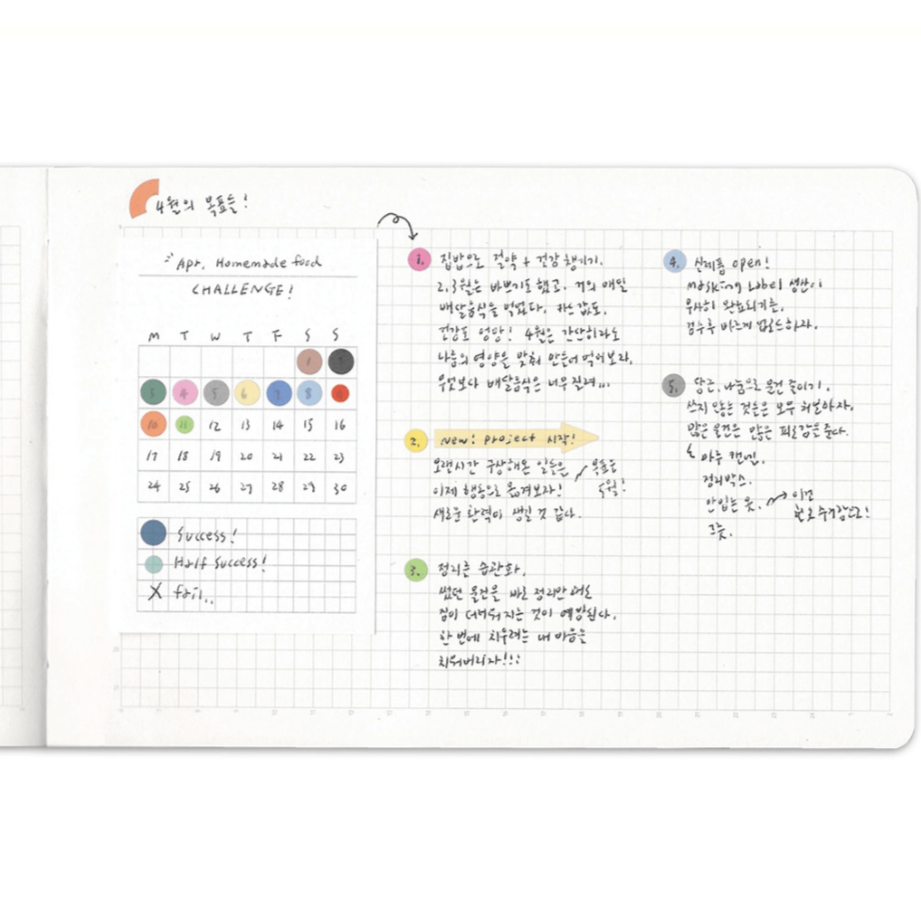 4월의 목표들!
Apr. Homemade food
CHALLENGE!
M T W T F S S
1 2
3 4 5 6 7 8 9
10 11 12 13 14 15 16
17 18 19 20 21 22 23
24 25 26 27 28 29 30
Success!
Half Success!
X fail..
1. 집밥으로 절약 + 건강 챙기기.
2,3월은 바쁘기도 했고, 거의 매일
배달음식을 먹었다. 값도,
건강도 엉망! 4월은 간단히라도
나름의 영양을 맞춰 만들어 먹어보자.
무엇보다 배달음식은 너무 질려...
2. New! project 시작!
오랜시간 구상해온 일들은
이제 행동으로 옮겨보자!
새로운 활력이 생길 것 같다.
목표는
5월!
3. 정리를 습관화.
썼던 물건을 바로 정리만 해도
집이 더러워지는 것이 예방된다.
한 번에 치우려는 내 마음을
치워버리자!!!
4. 신제품 open!
Masking Label 생산이
무사히 완료되기를,
검수후 빠르게 업로드하자.
5. 당근, 나눔으로 물건 줄이기.
쓰지 않는 것들은 모두 처분하자.
많은 물건은 많은 피로감을 준다.
정리박스.
안입는 옷.
그릇.